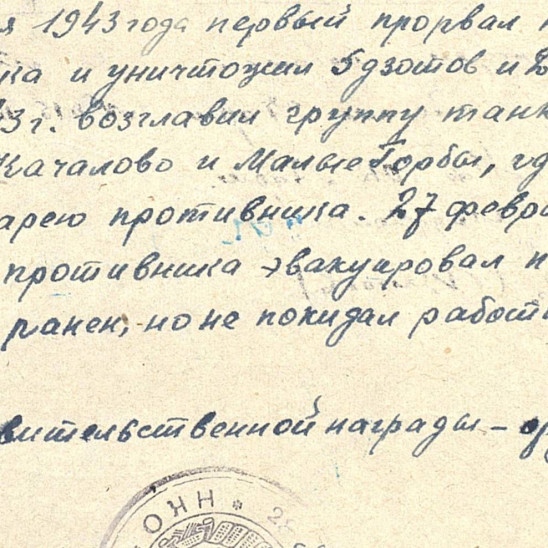 я 1943 года первый прорвал
ка и уничтожил 5 дзотов и
3 г. возглавил группу танк
Качалово и Малые Горбы, гд
арею противника. 27 февра
противника эвакуировал
ранен, но не покидал работ
вительственной награды – ор
НКО * 28